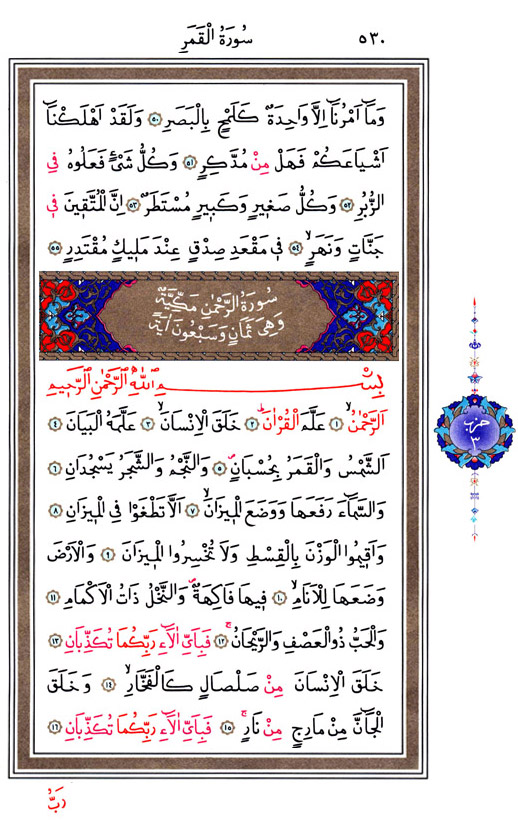 ٥٣٠ سُورَةُ الْقَمَرِ
وَمَٓا اَمْرُنَٓا اِلَّا وَاحِدَةٌ كَلَمْحٍ بِالْبَصَرِ ﴿٥٠﴾ وَلَقَدْ اَهْلَكْنَٓا
اَشْيَاعَكُمْ فَهَلْ مِنْ مُدَّكِرٍ ﴿٥١﴾ وَكُلُّ شَيْءٍ فَعَلُوهُ فِي
الزُّبُرِ ﴿٥٢﴾ وَكُلُّ صَغِيرٍ وَكَبِيرٍ مُسْتَطَرٌ ﴿٥٣﴾ اِنَّ الْمُتَّقِينَ فِي
جَنَّاتٍ وَنَهَرٍۙ ﴿٥٤﴾ فِي مَقْعَدِ صِدْقٍ عِنْدَ مَلِيكٍ مُقْتَدِرٍ ﴿٥٥﴾
سُورَةُ الرَّحْمٰنِ مَكِّيَّةٌ
وَهِيَ ثَمَانٍ وَسَبْعُونَ اٰيَةً
بِسْمِ اللّٰهِ الرَّحْمٰنِ الرَّحِيمِ
اَلرَّحْمٰنُۙ ﴿١﴾ عَلَّمَ الْقُرْاٰنَۜ ﴿٢﴾ خَلَقَ الْاِنْسَانَۙ ﴿٣﴾ عَلَّمَهُ الْبَيَانَ ﴿٤﴾
اَلشَّمْسُ وَالْقَمَرُ بِحُسْبَانٍۖ ﴿٥﴾ وَالنَّجْمُ وَالشَّجَرُ يَسْجُدَانِ ﴿٦﴾
وَالسَّمَٓاءَ رَفَعَهَا وَوَضَعَ الْمِيزَانَۙ ﴿٧﴾ اَلَّا تَطْغَوْا فِي الْمِيزَانِ ﴿٨﴾
وَاَقِيمُوا الْوَزْنَ بِالْقِسْطِ وَلَا تُخْسِرُوا الْمِيزَانَ ﴿٩﴾ وَالْاَرْضَ
وَضَعَهَا لِلْاَنَامِۙ ﴿١٠﴾ فِيهَا فَاكِهَةٌۖ وَالنَّخْلُ ذَاتُ الْاَكْمَامِ ﴿١١﴾
وَالْحَبُّ ذُو الْعَصْفِ وَالرَّيْحَانُۚ ﴿١٢﴾ فَبِاَيِّ اٰلَٓاءِ رَبِّكُمَا تُكَذِّبَانِ ﴿١٣﴾
خَلَقَ الْاِنْسَانَ مِنْ صَلْصَالٍ كَالْفَخَّارِۙ ﴿١٤﴾ وَخَلَقَ
الْجَٓانَّ مِنْ مَارِجٍ مِنْ نَارٍۚ ﴿١٥﴾ فَبِاَيِّ اٰلَٓاءِ رَبِّكُمَا تُكَذِّبَانِ ﴿١٦﴾
حزب
٣
رَبُّ